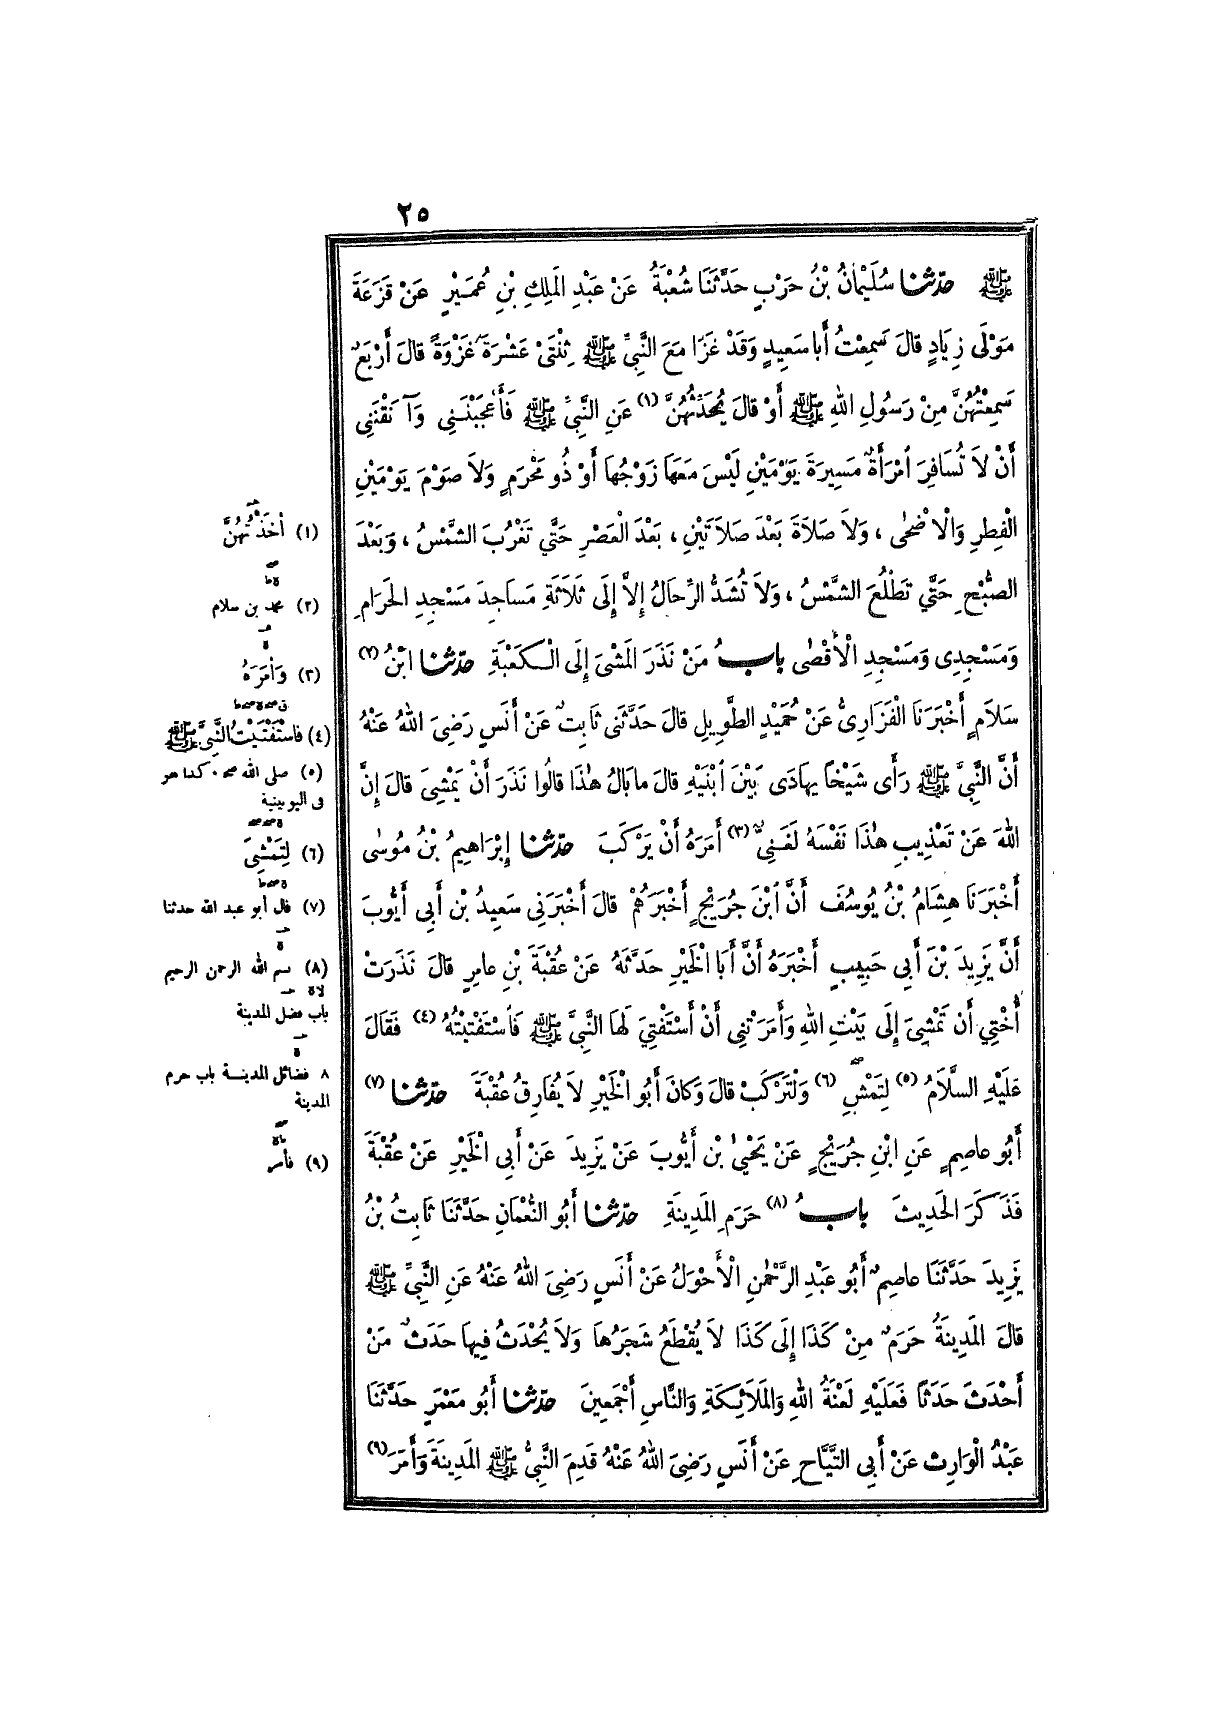 ٢٥
ﷺ حدّثنا سُلَيْمَانُ بْنُ حَرْبٍ حَدَّثَنَا شُعْبَةُ عَنْ عَبْدِ الْمَلِكِ بْنِ عُمَيْرٍ عَنْ قَزَعَةَ
مَوْلَى زِيَادٍ قَالَ سَمِعْتُ أَبَا سَعِيدٍ وَقَدْ غَزَا مَعَ النَّبِيِّ ﷺ ثِنْتَيْ عَشْرَةَ غَزْوَةً قَالَ أَرْبَعٌ
سَمِعْتُهُنَّ مِنْ رَسُولِ اللهِ ﷺ أَوْ قَالَ يُحَدِّثُهُنَّ (١) عَنِ النَّبِيِّ ﷺ فَأَعْجَبْنَنِي وَآنَقْنَنِي
أَنْ لَا تُسَافِرَ امْرَأَةٌ مَسِيرَةَ يَوْمَيْنِ لَيْسَ مَعَهَا زَوْجُهَا أَوْ ذُو مَحْرَمٍ وَلَا صَوْمَ يَوْمَيْنِ
الْفِطْرِ وَالْأَضْحَى ، وَلَا صَلَاةَ بَعْدَ صَلَاتَيْنِ ، بَعْدَ الْعَصْرِ حَتَّى تَغْرُبَ الشَّمْسُ ، وَبَعْدَ
الصُّبْحِ حَتَّى تَطْلُعَ الشَّمْسُ ، وَلَا تُشَدُّ الرِّحَالُ إِلَّا إِلَى ثَلَاثَةِ مَسَاجِدَ مَسْجِدِ الْحَرَامِ
وَمَسْجِدِى وَمَسْجِدِ الْأَقْصَى بابُ مَنْ نَذَرَ الْمَشْىَ إِلَى الْكَعْبَةِ حدّثنا ابْنُ (٢)
سَلَامٍ أَخْبَرَنَا الْفَزَارِىُّ عَنْ حُمَيْدٍ الطَّوِيلِ قَالَ حَدَّثَنِى ثَابِتٌ عَنْ أَنَسٍ رَضِىَ اللهُ عَنْهُ
أَنَّ النَّبِيَّ ﷺ رَأَى شَيْخًا يُهَادَى بَيْنَ ابْنَيْهِ قَالَ مَا بَالُ هٰذَا قَالُوا نَذَرَ أَنْ يَمْشِىَ قَالَ إِنَّ
اللهَ عَنْ تَعْذِيبِ هٰذَا نَفْسَهُ لَغَنِيٌّ (٣) أَمَرَهُ أَنْ يَرْكَبَ حدّثنا إِبْرَاهِيمُ بْنُ مُوسَى
أَخْبَرَنَا هِشَامُ بْنُ يُوسُفَ أَنَّ ابْنَ جُرَيْجٍ أَخْبَرَهُمْ قَالَ أَخْبَرَنِي سَعِيدُ بْنِ أَبِي أَيُّوبَ
أَنَّ يَزِيدَ بْنَ أَبِي حَبِيبٍ أَخْبَرَهُ أَنَّ أَبَا الْخَيْرِ حَدَّثَهُ عَنْ عُقْبَةَ بْنِ عَامِرٍ قَالَ نَذَرَتْ
أُخْتِي أَن تَمْشِىَ إِلَى بَيْتِ اللهِ وَأَمَرَتْنِي أَنْ أَسْتَفْتِيَ لَهَا النَّبِيَّ ﷺ فَاسْتَفْتَيْتُهُ (٤) فَقَالَ
عَلَيْهِ السَّلَامُ (٥) لِتَمْشِ (٦) وَلْتَرْكَبْ قَالَ وَكَانَ أَبُو الْخَيْرِ لَا يُفَارِقُ عُقْبَةَ حدّثنا (٧)
أَبُو عَاصِمٍ عَنِ ابْنِ جُرَيْجٍ عَنْ يَحْيَى بْنِ أَيُّوبَ عَنْ يَزِيدَ عَنْ أَبِي الْخَيْرِ عَنْ عُقْبَةَ
فَذَكَرَ الْحَدِيثَ بابُ (٨) حَرَمِ الْمَدِينَةِ حدّثنا أَبُو النُّعْمَانِ حَدَّثَنَا ثَابِتُ بْنُ
يَزِيدَ حَدَّثَنَا عَاصِمٌ أَبُو عَبْدِ الرَّحْمٰنِ الْأَحْوَلُ عَنْ أَنَسٍ رَضِىَ اللهُ عَنْهُ عَنِ النَّبِيِّ ﷺ
قَالَ الْمَدِينَةُ حَرَمٌ مِنْ كَذَا إِلَى كَذَا لَا يُقْطَعُ شَجَرُهَا وَلَا يُحْدَثُ فِيهَا حَدَثٌ مَنْ
أَحْدَثَ حَدَثًا فَعَلَيْهِ لَعْنَةُ اللهِ وَالْمَلَائِكَةِ وَالنَّاسِ أَجْمَعِينَ حدّثنا أَبُو مَعْمَرٍ حَدَّثَنَا
عَبْدُ الْوَارِثِ عَنْ أَبِي التَّيَّاحِ عَنْ أَنَسٍ رَضِىَ اللهُ عَنْهُ قَدِمَ النَّبِيُّ ﷺ الْمَدِينَةَ وَأَمَرَ (٩)
(١) أَخَذْتُهُنَّ
(٢) محمد بن سلام
(٣) وَأَمَرَهُ
(٤) فَاسْتَفْتَيْتُ النَّبِيَّ ﷺ
(٥) صلى الله صح . كذا هو
فى اليونينية
(٦) لِتَمْشِىَ
(٧) قال أبو عبد الله حدثنا
(٨) بسم الله الرحمن الرحيم
باب فضل المدينة
٨ فضائل المدينة باب حرم
المدينة
(٩) فأمر